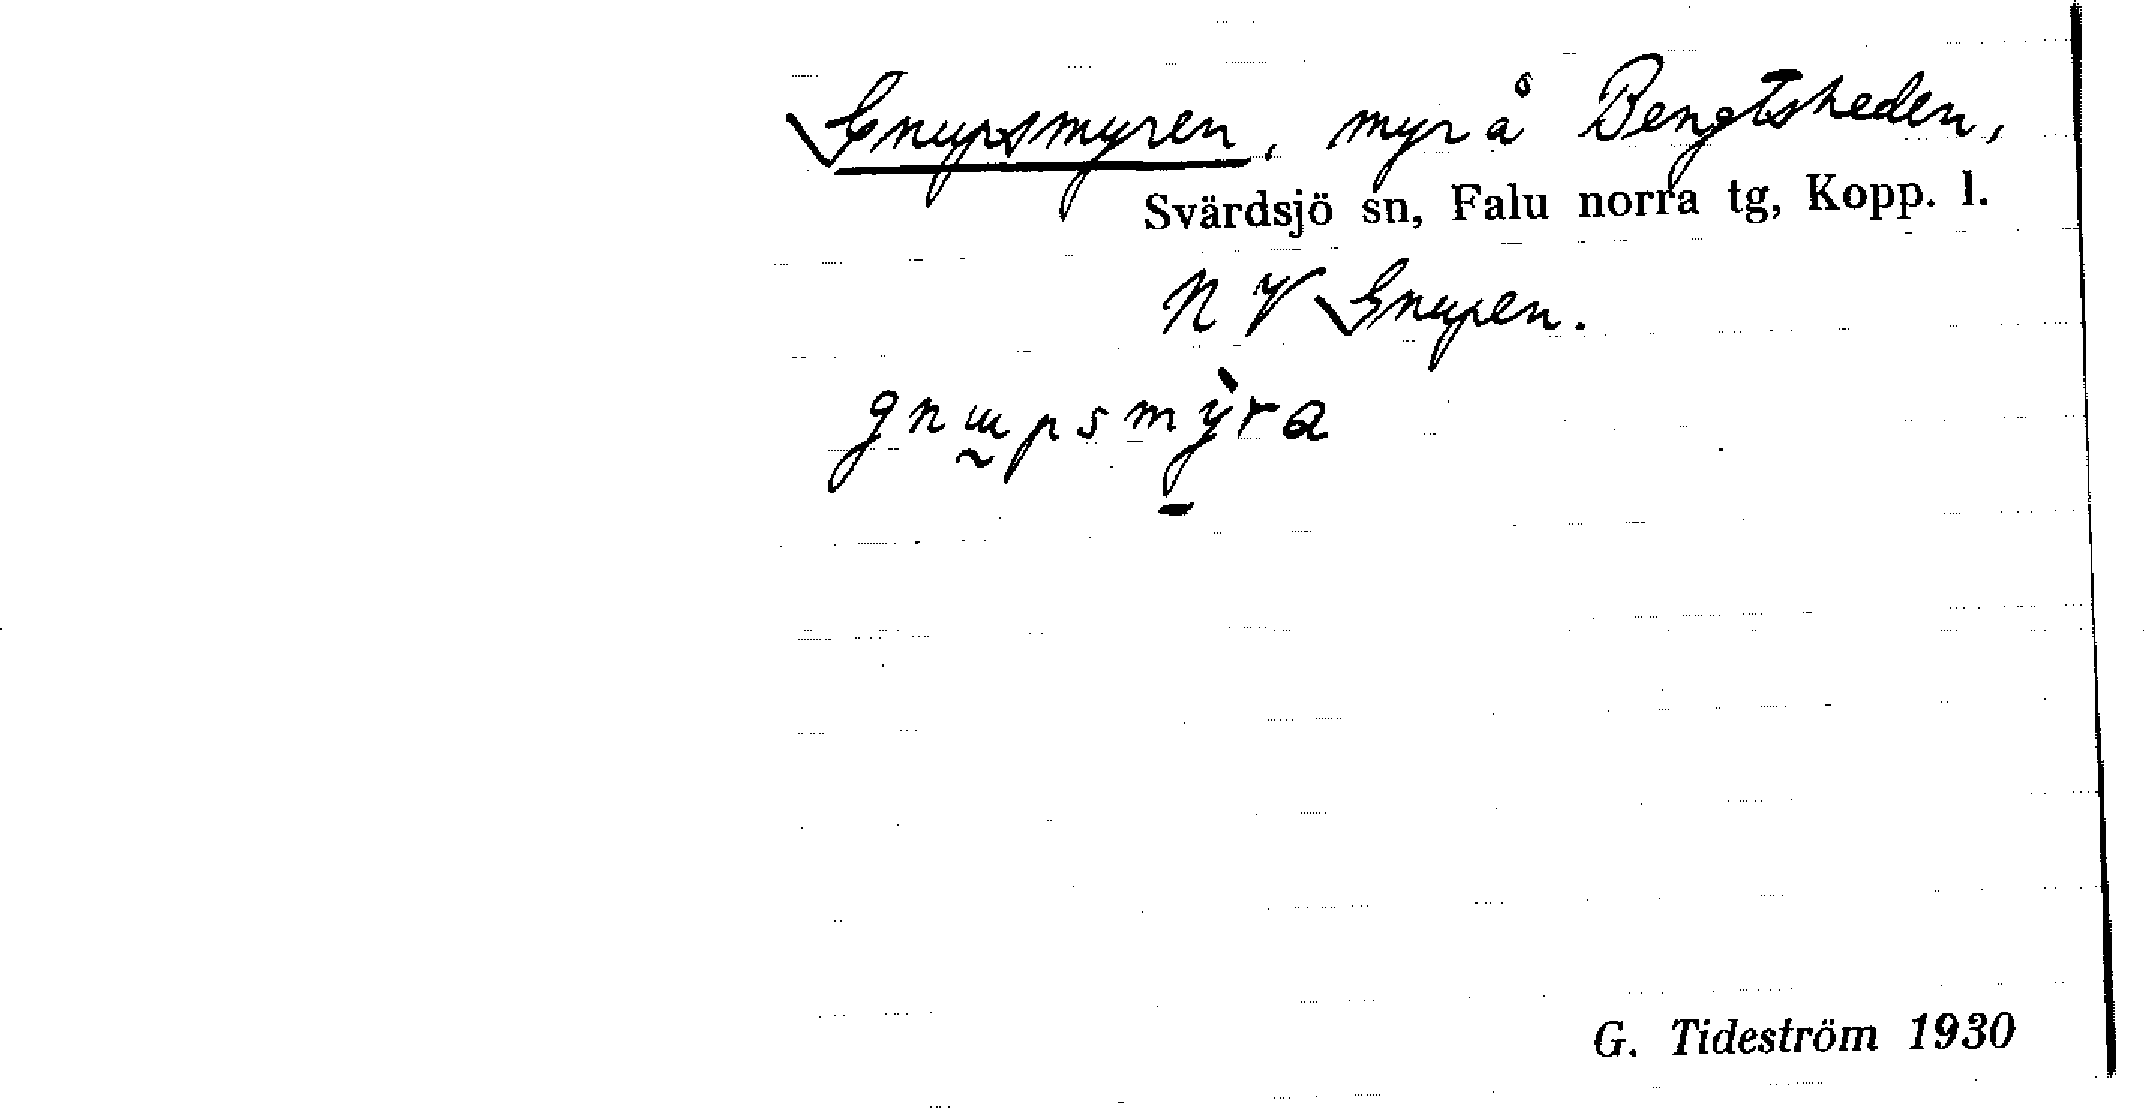 Gnupsmyren, myr å Bengtsheden,
Svärdsjö sn, Falu norra tg, Kopp. l.
N V Gnupen.
gnɯpsmỳra
G. Tideström 1930